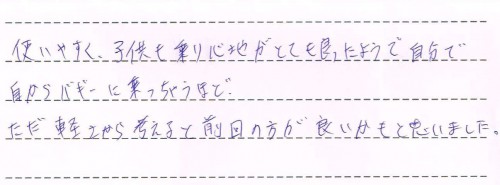 使いやすく、子供も乗り心地がとても良ったようで自分で
自からバギーに乗っちゃうほど。
ただ軽さから考えると前回の方が良いかもと思いました。